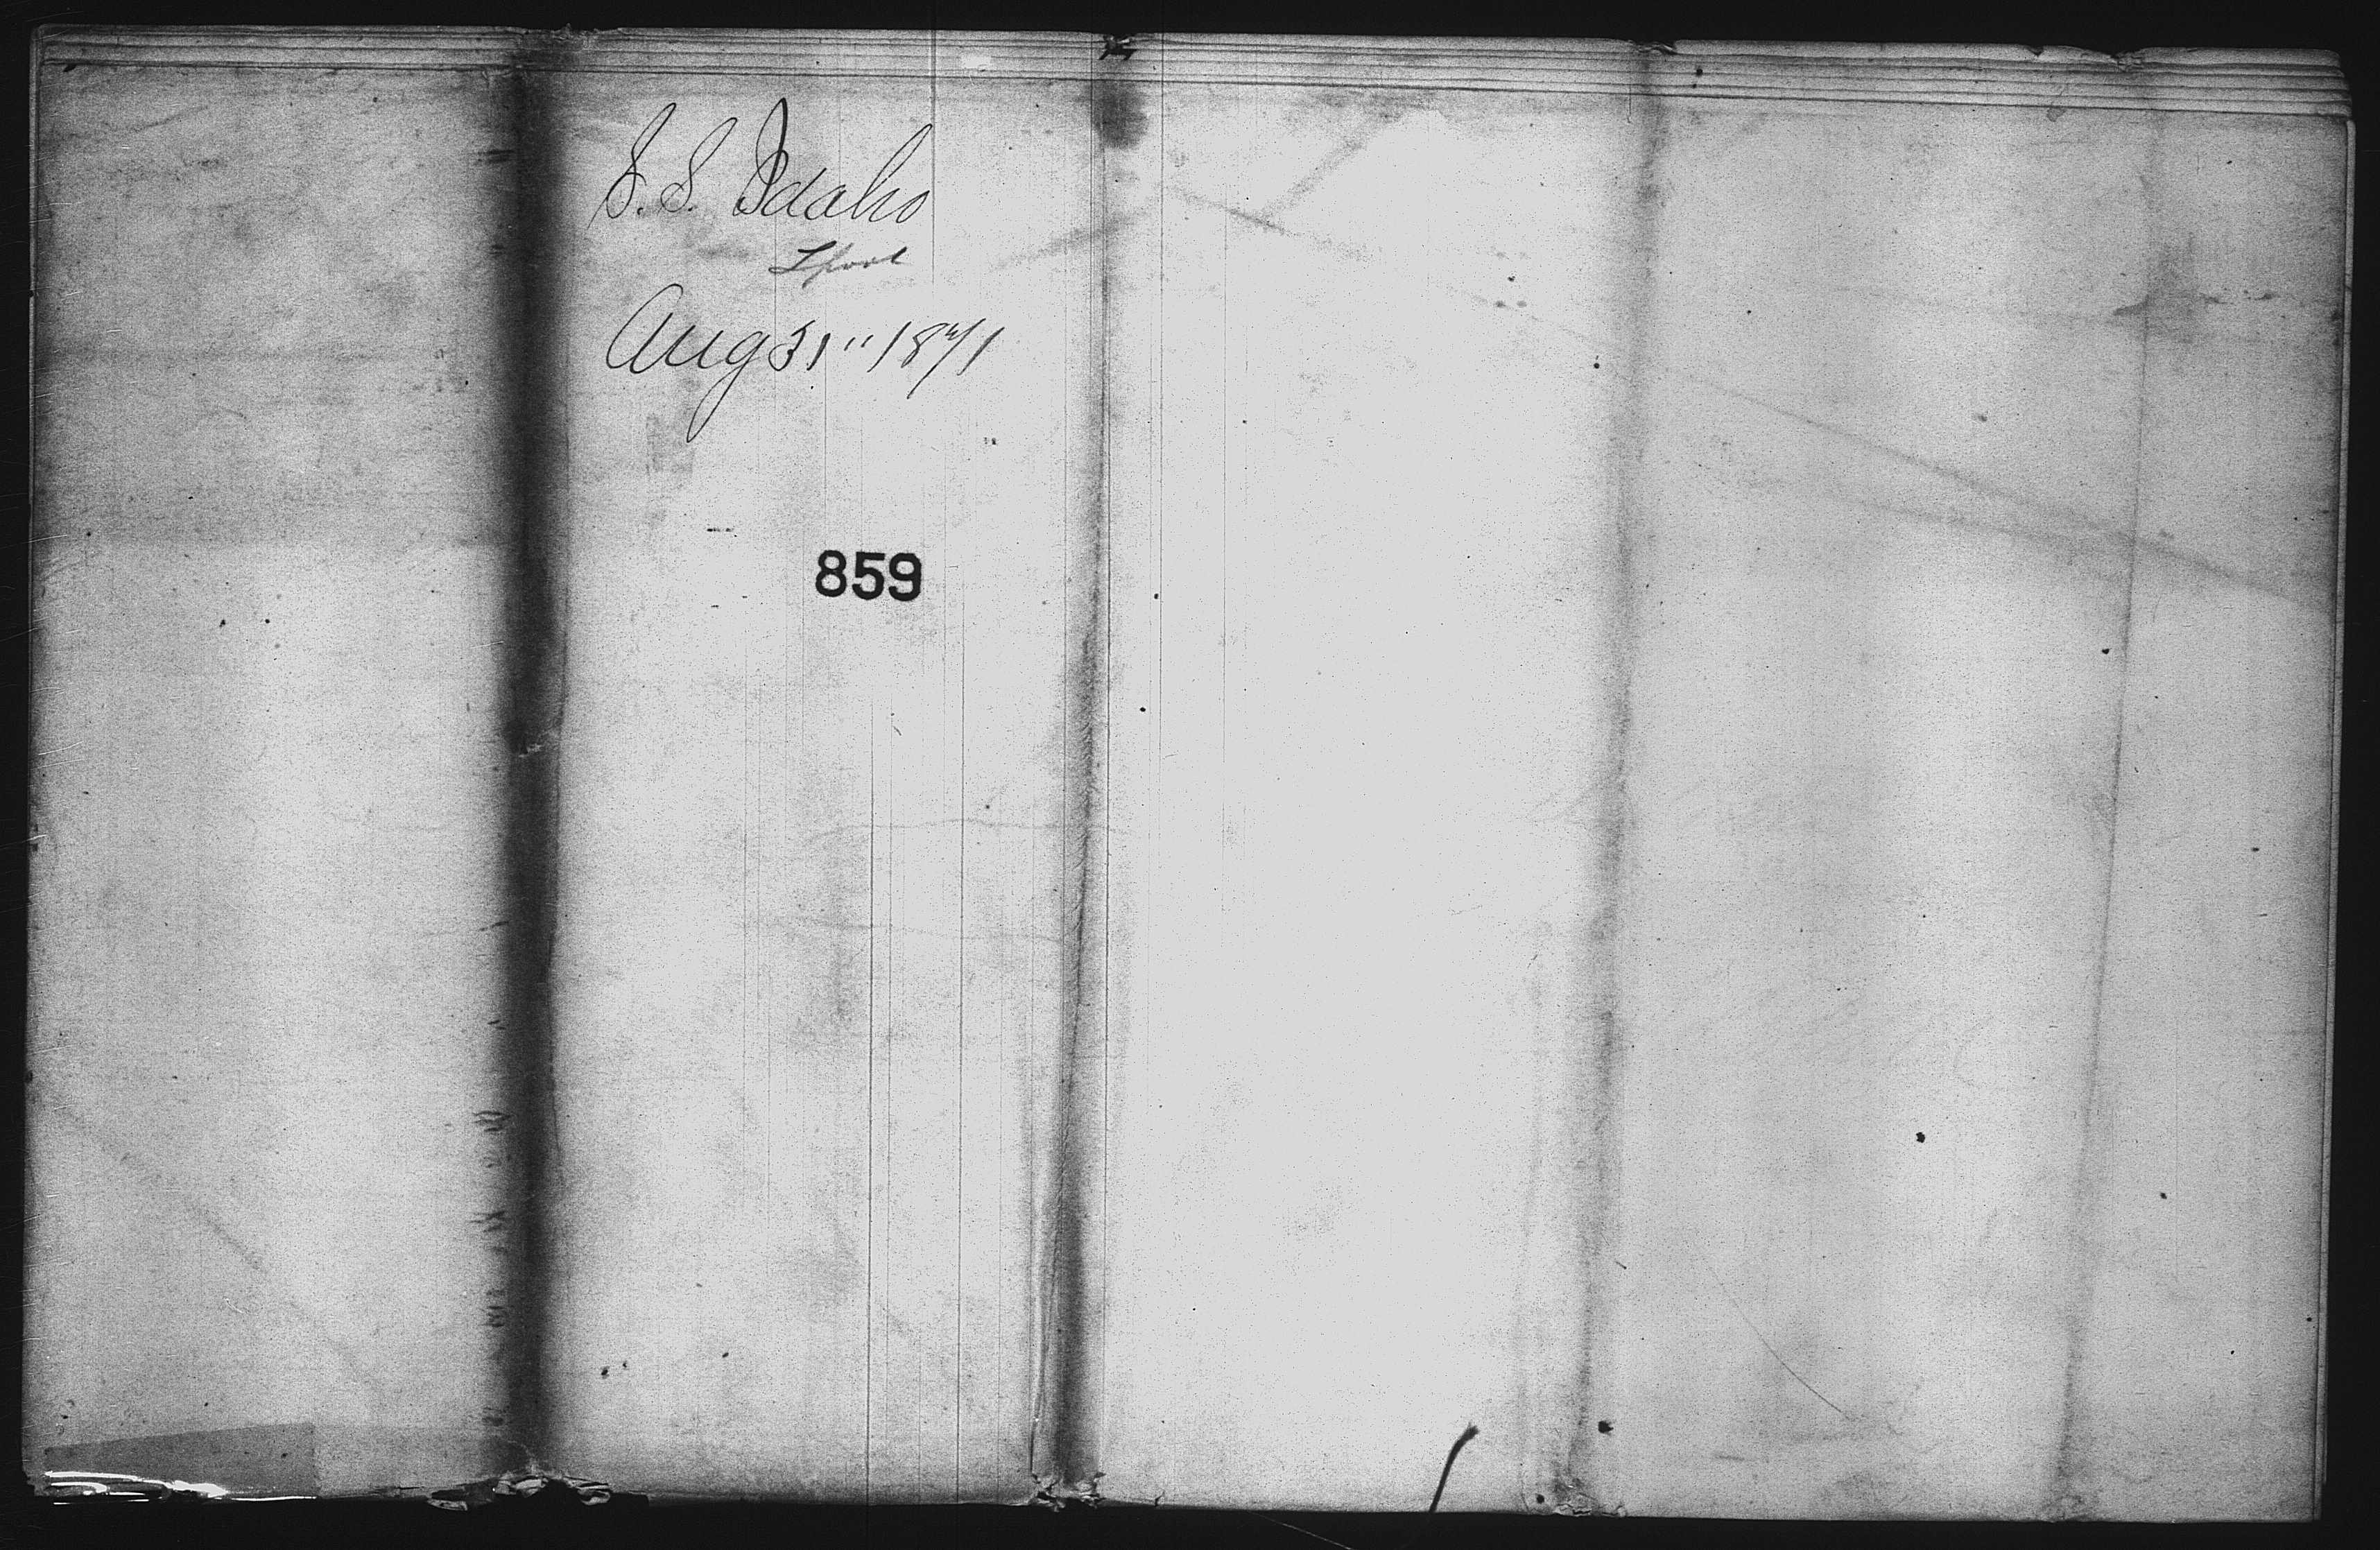 S.S. Idaho
Lpool
Aug 31" 1871
859